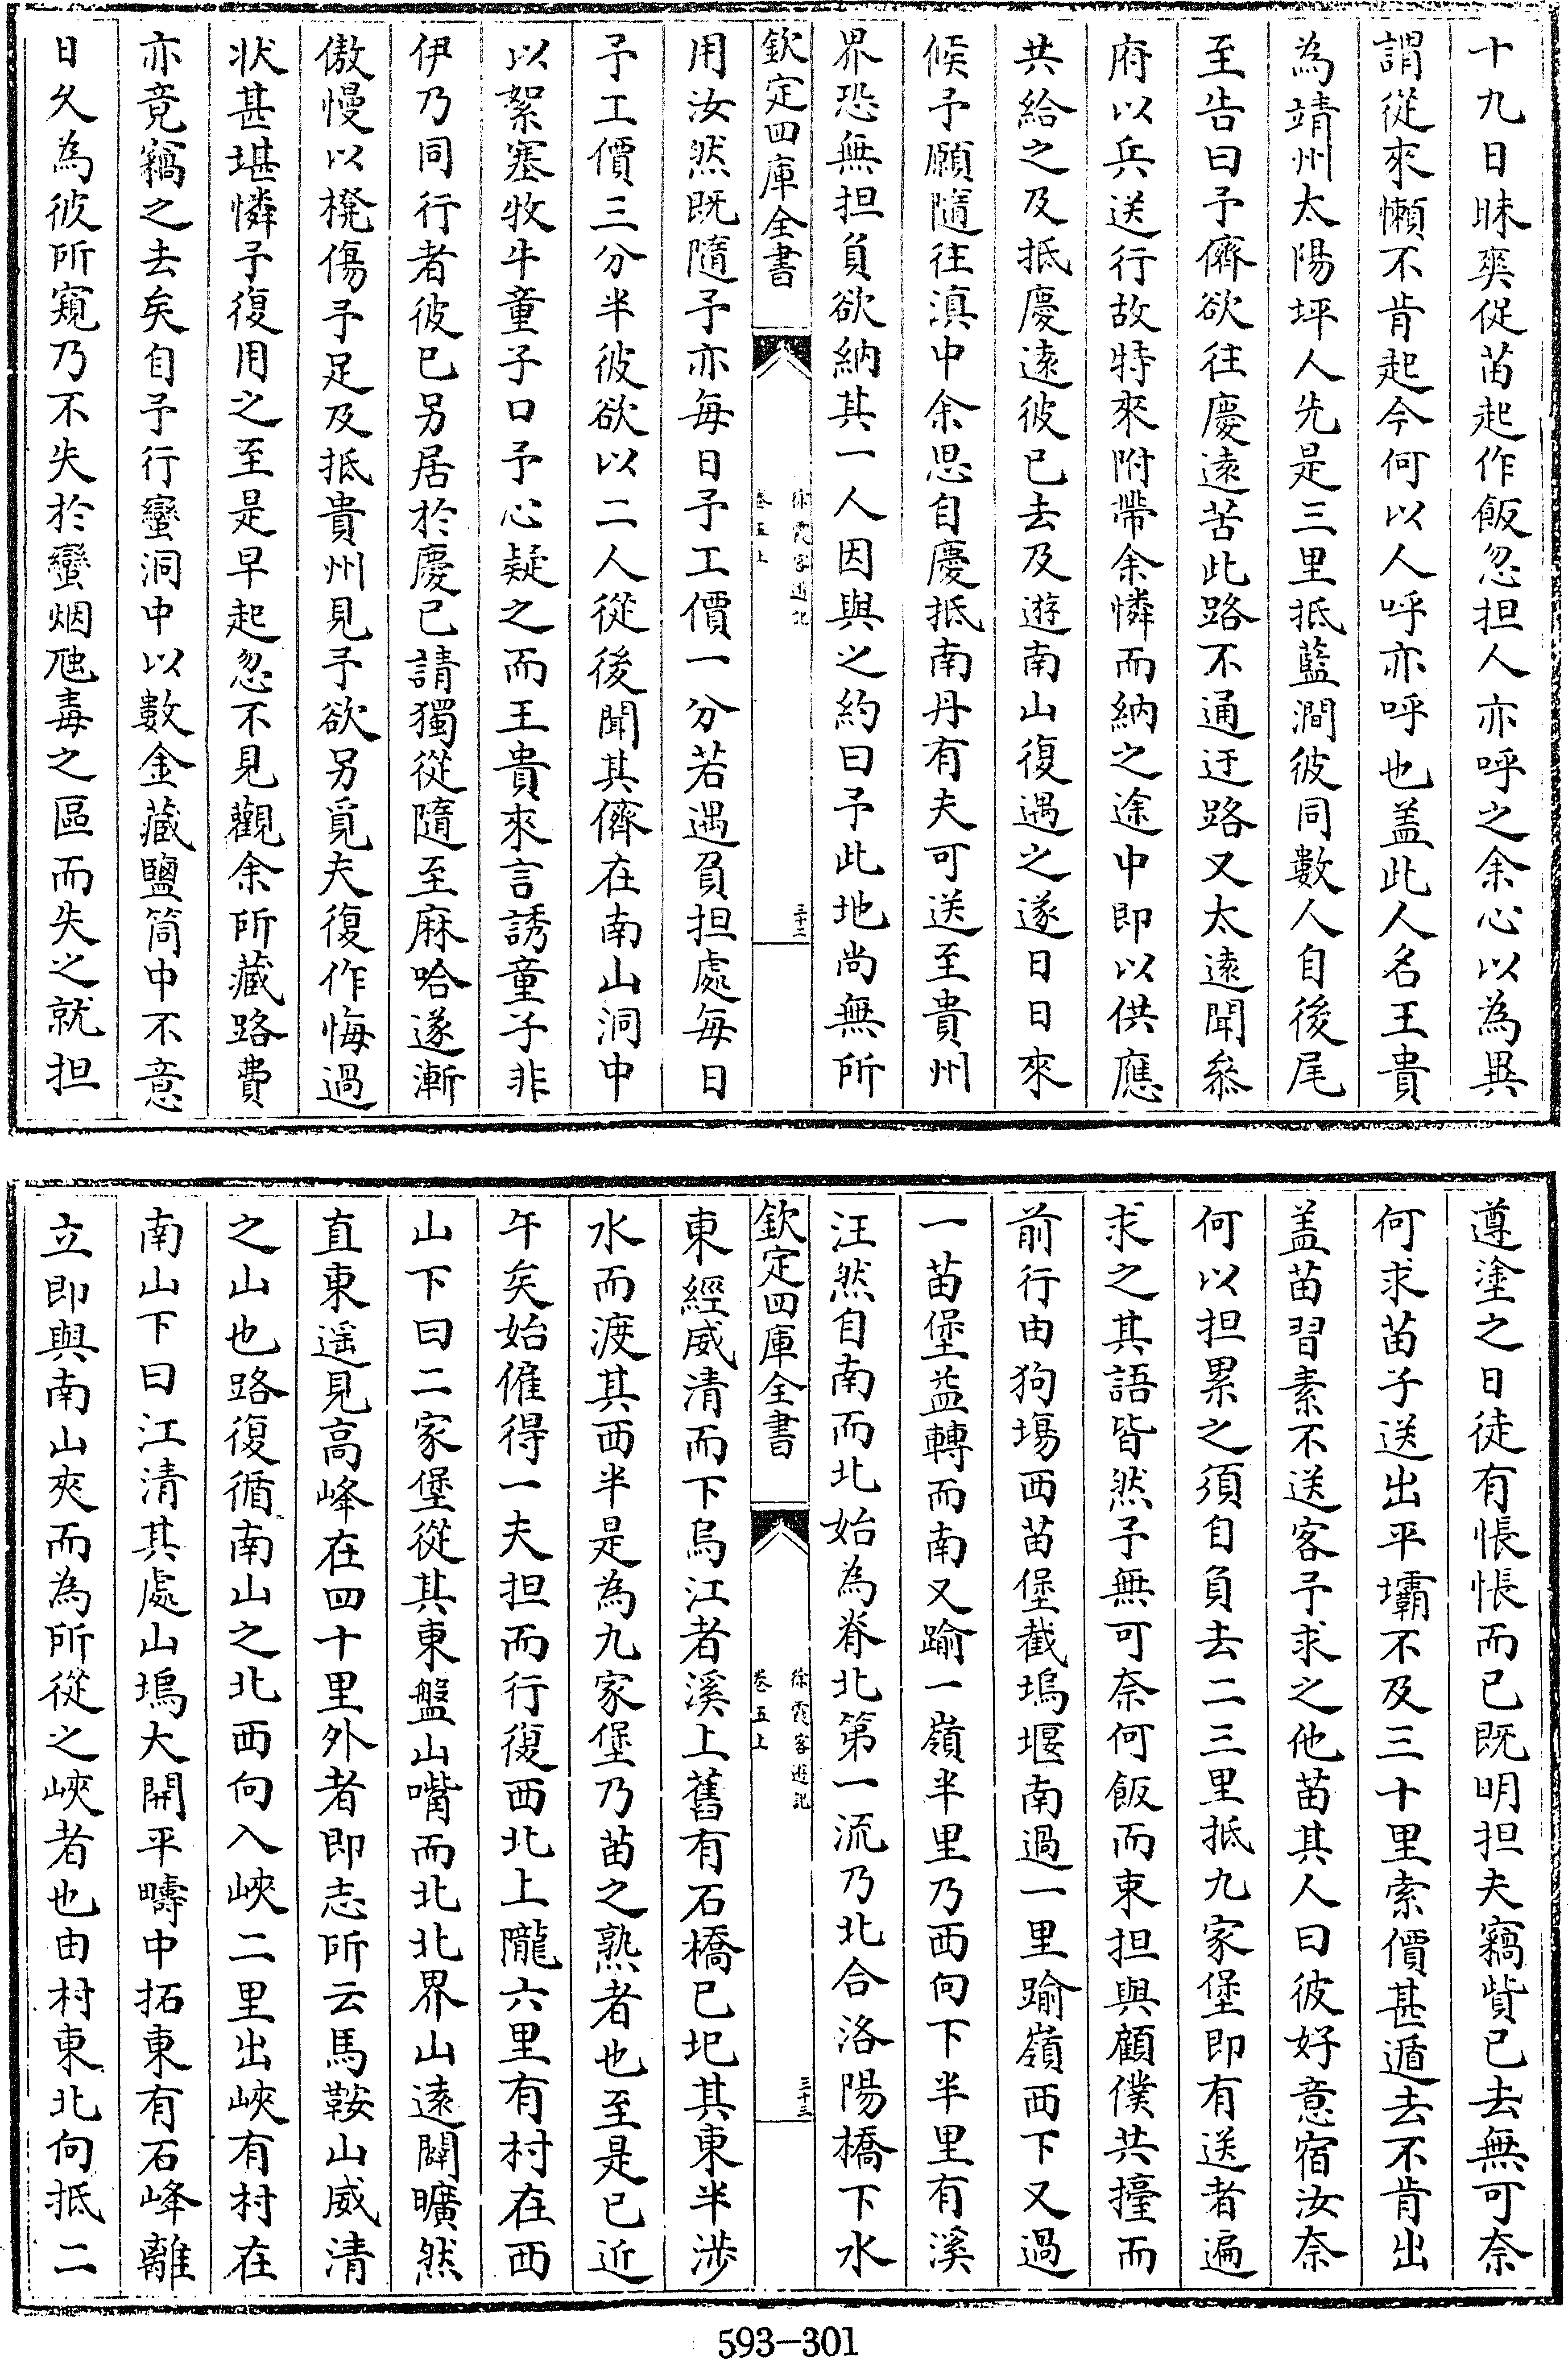 十九日昧爽促苗起作飯忽担人亦呼之余心以為異
謂從來懶不肯起今何以人呼亦呼也盖此人名王貴
為靖州太陽坪人先是三里抵藍澗彼同數人自後尾
至告曰予儕欲往慶遠苦此路不通迂路又太遠聞叅
府以兵送行故特來附帶余憐而納之途中即以供應
共給之及抵慶遠彼已去及遊南山復遇之遂日日來
候予願隨往滇中余思自慶抵南丹有夫可送至貴州
界恐無担負欲納其一人因與之約曰予此地尚無所
欽定四庫全書
徐霞客遊記
卷五上
三十二
用汝然既隨予亦每日予工價一分若遇負担處每日
予工價三分半彼欲以二人從後聞其儕在南山洞中
以絮塞牧牛童子口予心疑之而王貴來言誘童子非
伊乃同行者彼已另居於慶已請獨從隨至麻哈遂漸
傲慢以櫈傷予足及抵貴州見予欲另覓夫復作悔過
狀甚堪憐予復用之至是早起忽不見觀余所藏路費
亦竟竊之去矣自予行蠻洞中以數金藏鹽筒中不意
日久為彼所窺乃不失於蠻烟虺毒之區而失之就担
遵塗之日徒有悵悵而已既明担夫竊貲已去無可奈
何求苗子送出平壩不及三十里索價甚遁去不肯出
盖苗習素不送客予求之他苗其人曰彼好意宿汝奈
何以担累之須自負去二三里抵九家堡即有送者遍
求之其語皆然予無可奈何飯而束担與顧僕共擡而
前行由狗塲西苗堡截塢堰南過一里踰嶺西下又過
一苗堡益轉而南又踰一嶺半里乃西向下半里有溪
汪然自南而北始為脊北第一流乃北合洛陽橋下水
欽定四庫全書
徐霞客遊記
卷五上
三十三
東經威清而下烏江者溪上舊有石橋已圯其東半涉
水而渡其西半是為九家堡乃苗之熟者也至是已近
午矣始僱得一夫担而行復西北上隴六里有村在西
山下曰二家堡從其東盤山嘴而北北界山遠闢曠然
直東遥見高峰在四十里外者即志所云馬鞍山威清
之山也路復循南山之北西向入峽二里出峽有村在
南山下曰江清其處山塢大開平疇中拓東有石峰離
立即與南山夾而為所從之峽者也由村東北向抵二
593—301